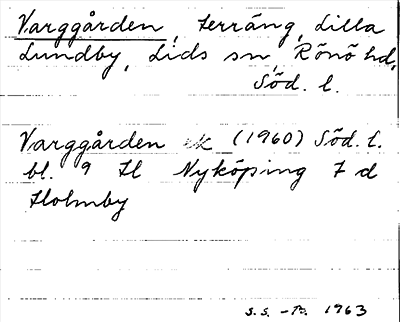 Varggården, terräng, Lilla
Lundby, Lids sn, Rönö hd,
Söd. l.
Varggården ek (1960) Söd. l.
bl. 9 H Nyköping 7 d
Holmby
S.S. - 1963